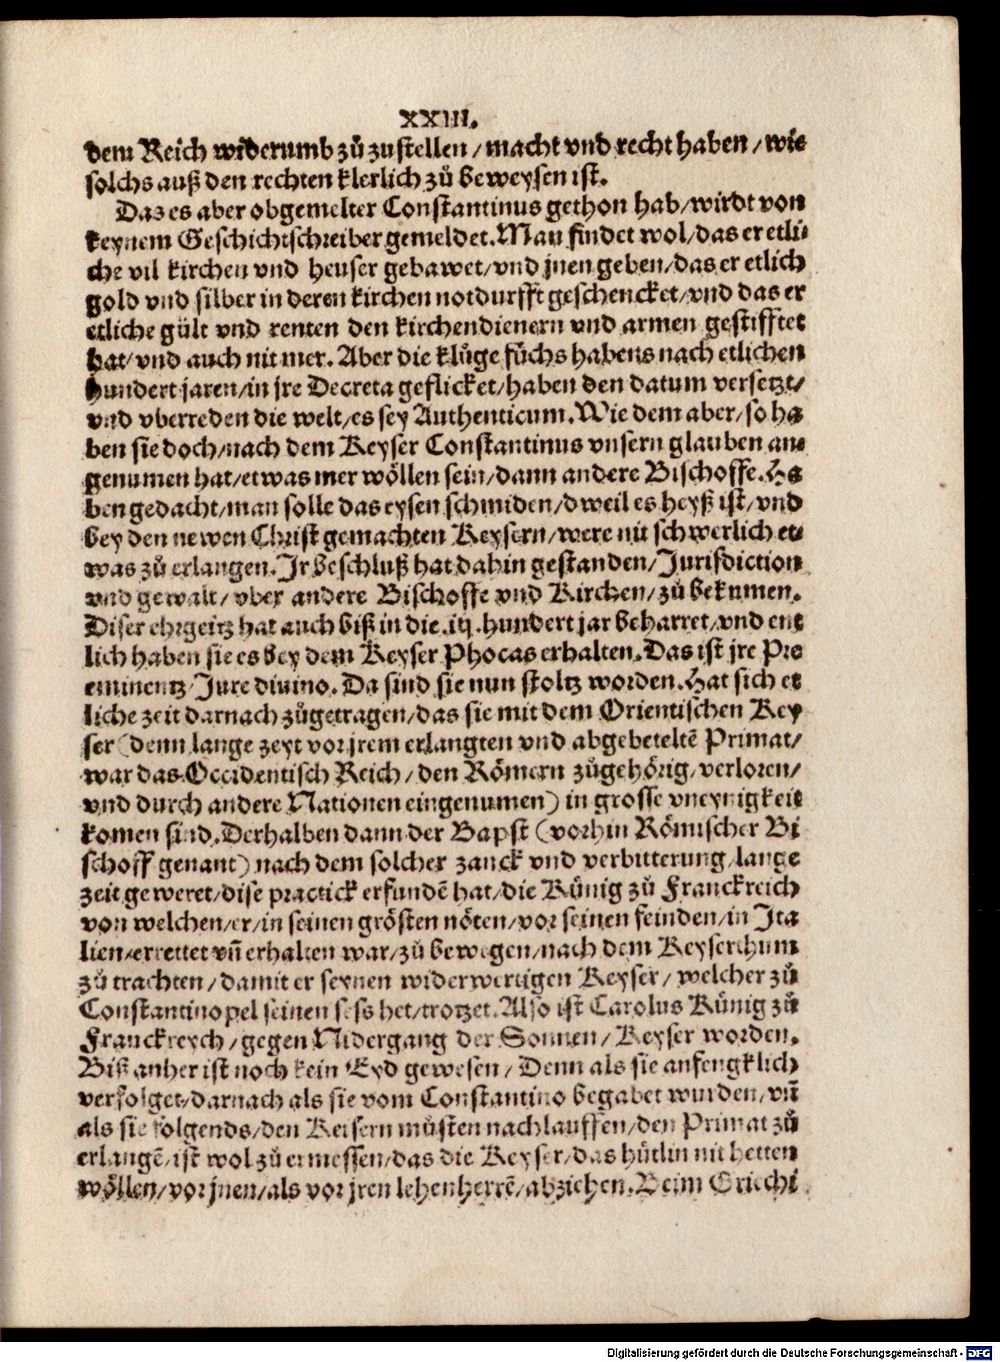 XXIII.
dem Reich widerumb zů zustellen / macht vnd recht haben / wie
solchs auß den rechten klerlich zů beweysen ist.
Das es aber obgemelter Constantinus gethon hab / wirdt von
keynem Geschichtschreiber gemeldet. Man findet wol / das er etli-
che vil kirchen vnd heuser gebawet / vnd jnen geben / das er etlich
gold vnd silber in deren kirchen notdurfft geschencket / vnd das er
etliche gült vnd renten den kirchendienern vnd armen gestifftet
hat / vnd auch nit mer. Aber die klůge füchs habens nach etlichen
hundert jaren / in jre Decreta geflicket / haben den datum versetzt /
vnd vberreden die welt / es sey Authenticum. Wie dem aber / so ha
ben sie doch / nach dem Keyser Constantinus vnsern glauben an-
genumen hat / etwas mer wöllen sein / dann andere Bischoffe. Ha
ben gedacht / man solle das eysen schmiden / dweil es heyß ist / vnd
bey den newen Christ gemachten Keysern / were nit schwerlich et-
was zů erlangen. Jr beschluß hat dahin gestanden / Jurisdiction
vnd gewalt / vber andere Bischoffe vnd Kirchen / zů bekumen.
Diser ehrgeitz hat auch biß in die .iij. hundert jar beharret / vnd ent
lich haben sie es bey dem Keyser Phocas erhalten. Das ist jre Pre
eminentz / Jure diuino. Da sind sie nun stoltz worden. Hat sich et
liche zeit darnach zůgetragen / das sie mit dem Orientischen Key
ser (denn lange zeyt vor jrem erlangten vnd abgebeteltē Primat /
war das Occidentisch Reich / den Römern zůgehörig / verloren /
vnd durch andere Nationen eingenumen) in grosse vneynigkeit
komen sind. Derhalben dann der Bapst (vorhin Römischer Bi
schoff genant) nach dem solcher zanck vnd verbitterung / lange
zeit geweret / dise practick erfundē hat / die Künig zů Franckreich
von welchen / er / in seinen grösten nöten / vor seinen feinden / in Ita
lien / errettet vñ erhalten war / zů bewegen / nach dem Keyserthum
zů trachten / damit er seynen widerwertigen Keyser / welcher zů
Constantinopel seinen sess het / trotzet. Also ist Carolus Künig zů
Franckreych / gegen Nidergang der Sonnen / Keyser worden.
Biß anher ist noch kein Eyd gewesen / Denn als sie anfengklich
verfolget / darnach als sie vom Constantino begabet wurden / vñ
als sie folgends / den Keisern můsten nachlauffen / den Primat zů
erlangē / ist wol zů ermessen / das die Keyser / das hütlin nit hetten
wöllen / vor jnen / als vor jren lehenherrē / abziehen. Beim Griechi
Digitalisierung gefördert durch die Deutsche Forschungsgemeinschaft - DFG